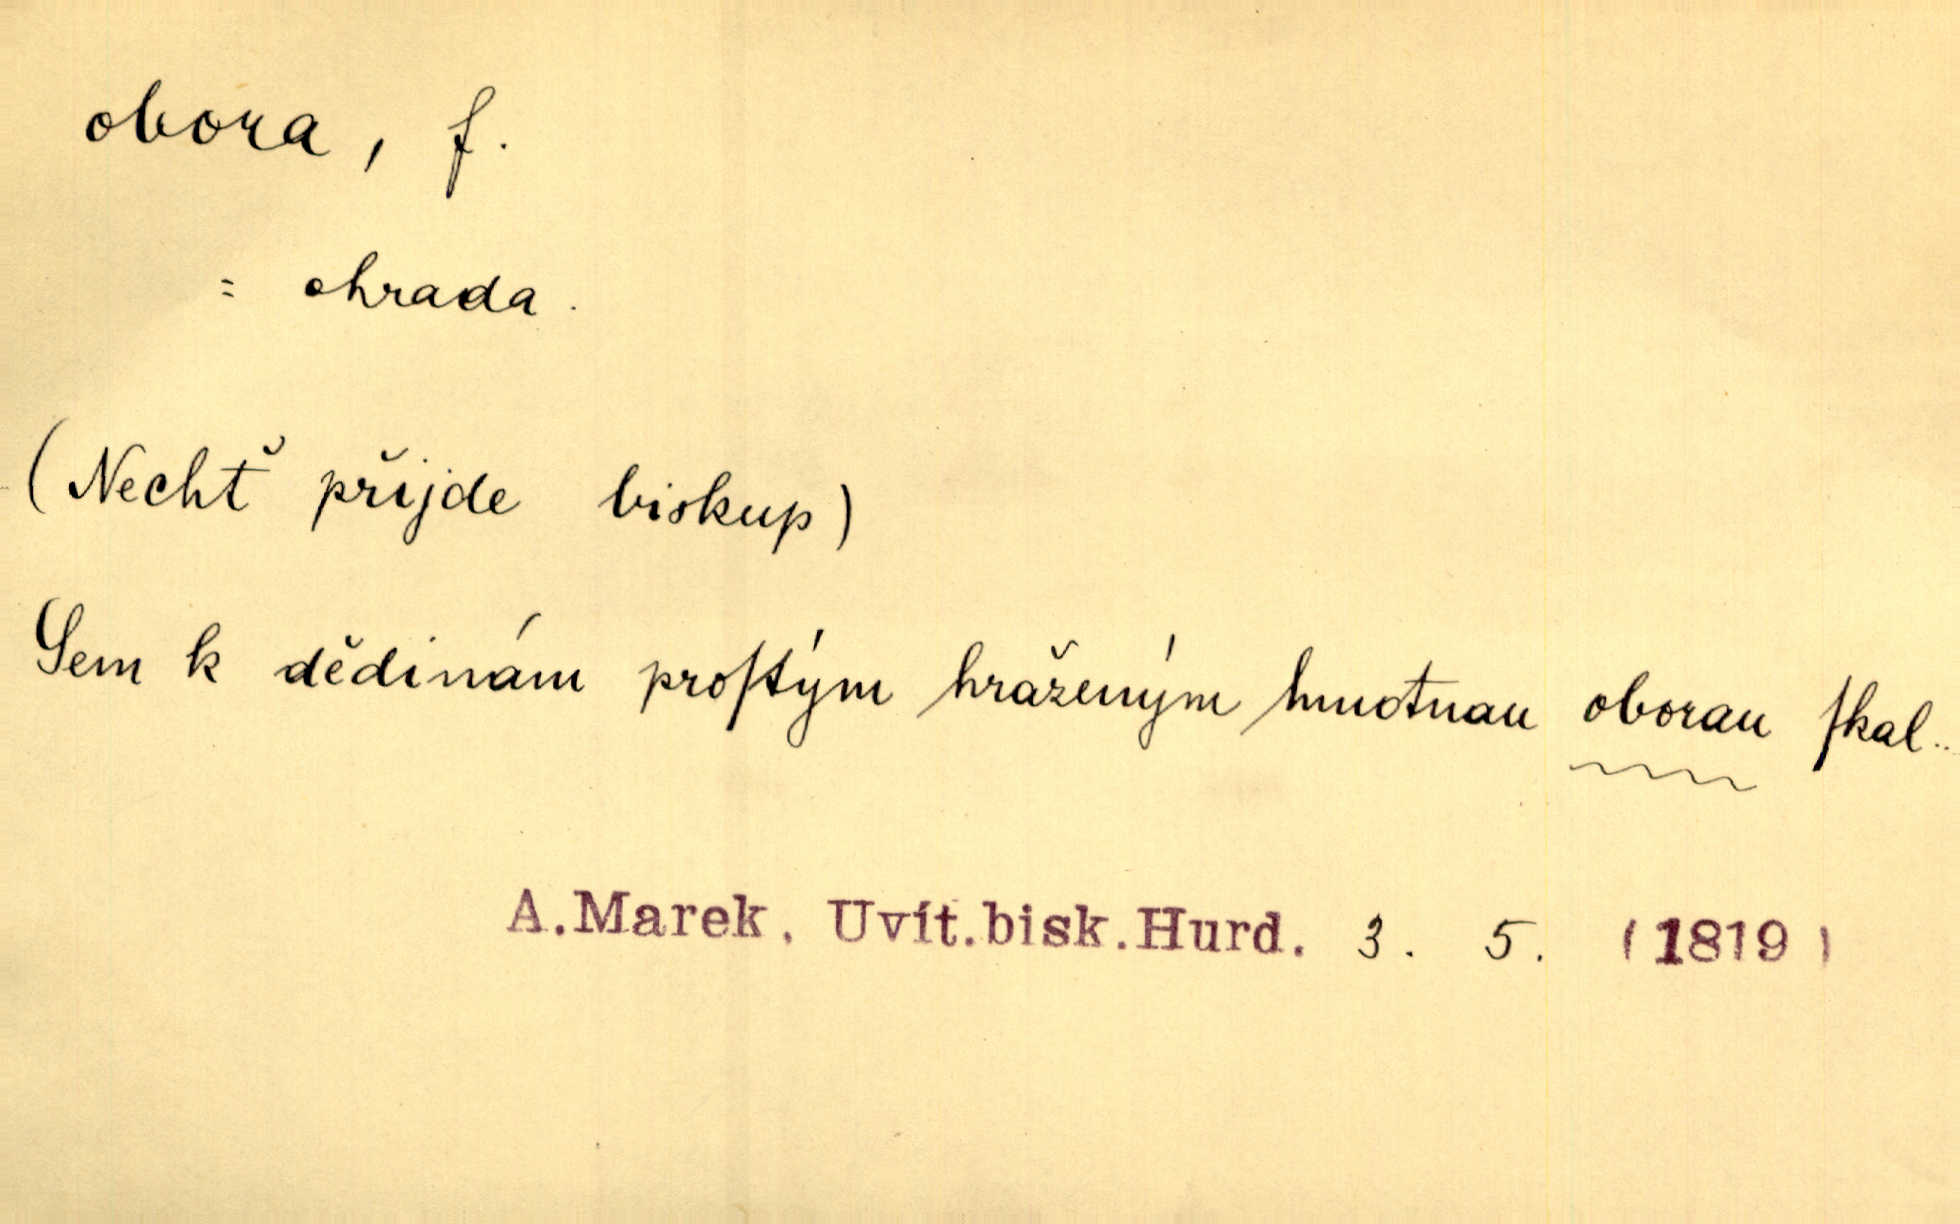 obora, f.
= ohrada.
(Nechť přijde biskup)
Sem k dědinám proſtým hraženým hmotnau oborau ſkal..
A.Marek, Uvít.bisk.Hurd. 3. 5. (1819)